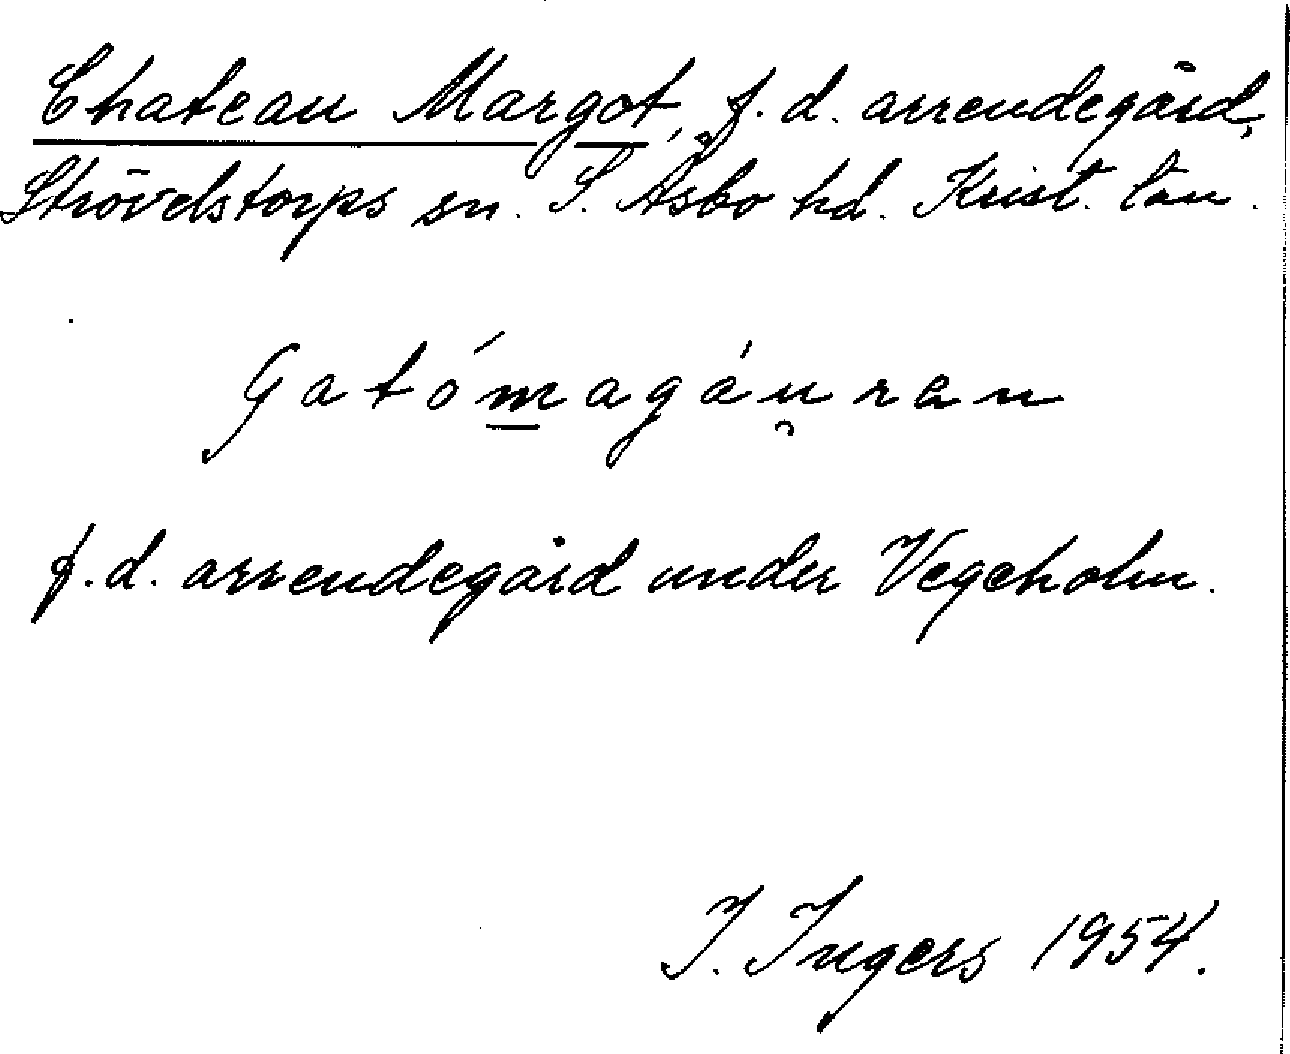 Chateau Margot, f.d. arrendegård,
Strövelstorps sn. S. Åsbo hd. Krist. län.
Gatómagáu̯ren
f.d. arrendegård under Vegeholm.
I. Ingers 1954.